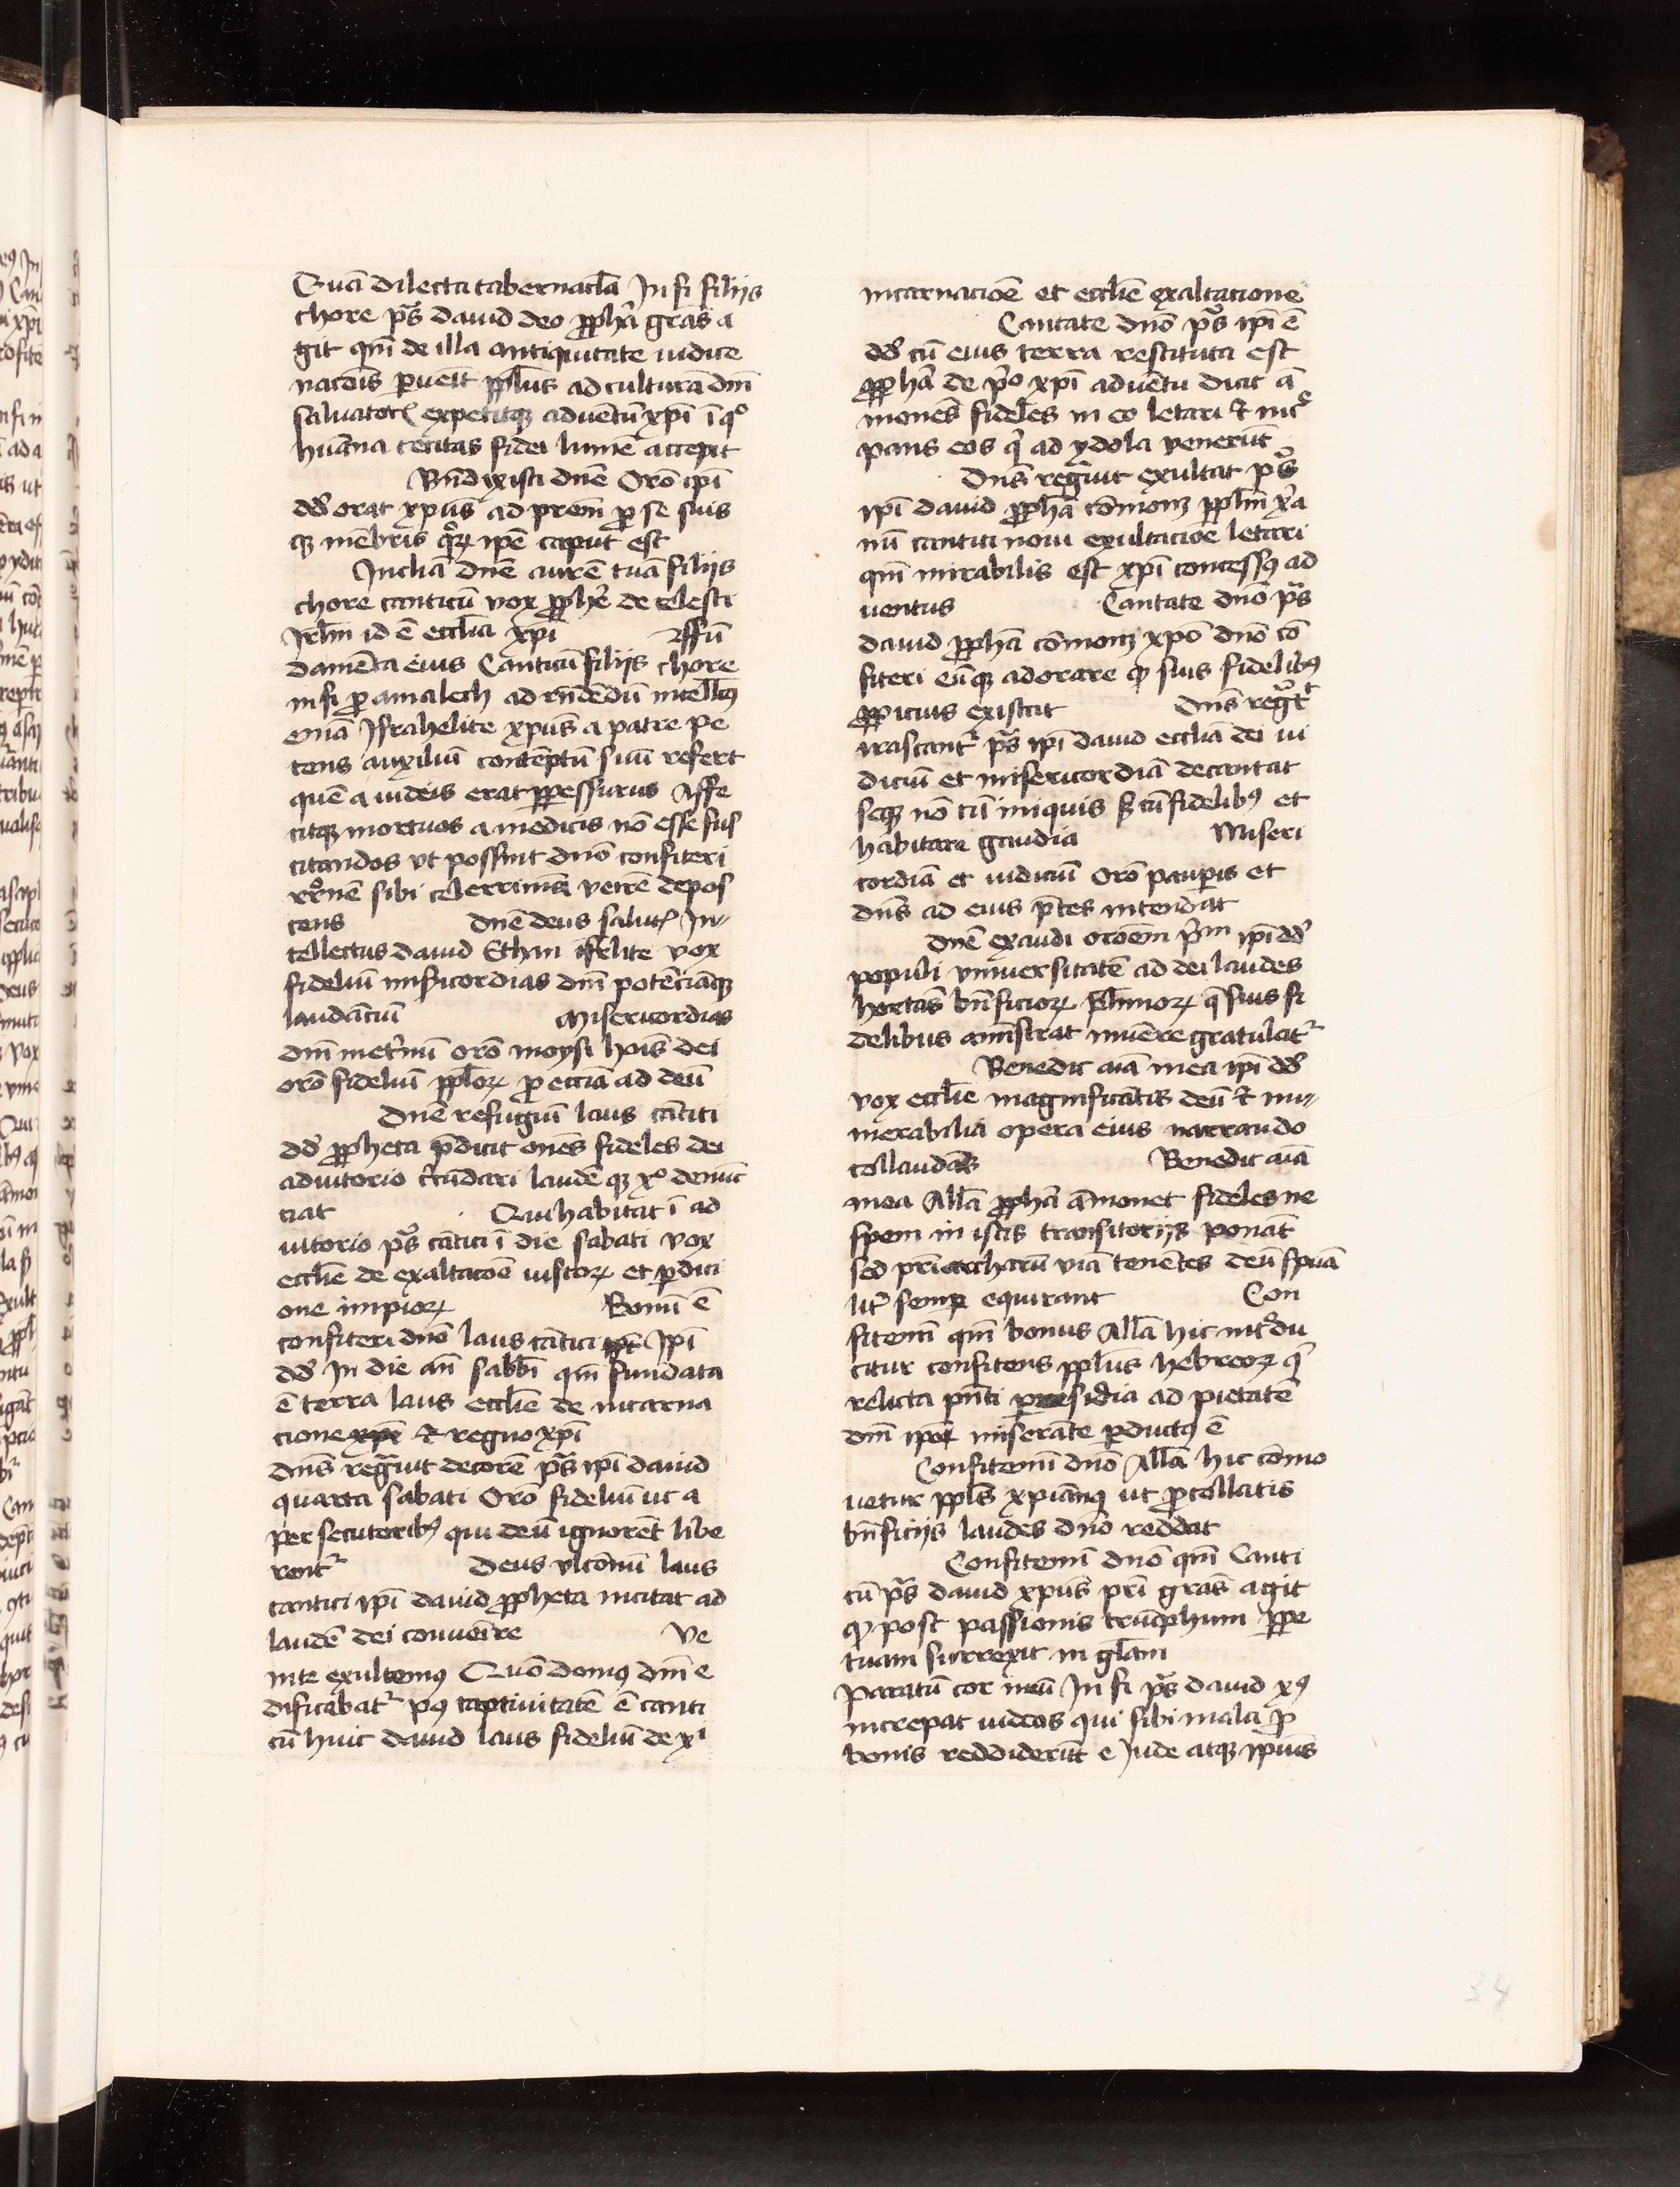 Quā dilecta tabernacl̄a In fi filijs
chore p̄s dauid deo ꝓphā gr̄as a
git qm̄ de illa antiquitate iudice
nacōis ꝑuēit ppl̄us ad culturā dm̄
saluatorꝭ expetitqꝫ aduētū xp̄i ī qͦ
huāna cecitas fidei lumē accepit
Bn̄dixisti dn̄e Orō ip̄i
dd̄ orat xp̄us ad prem̄ ꝓ se suis
qꝫ mēbris quoꝝ ip̄e caput est
Inclīa dn̄e aurē tuā filijs
chore canticū vox ꝓphē de celesti
Irl̄m id ē ecclīa xp̄i Ffū
damēta eius Canticū filijs chore
in fi ꝓ amalech ad rn̄dēdū intell̄cꝰ
emā Israhelite xp̄us a patre pe
tens auxiliū contēptū suū refert
quē a iudeis erat ꝑpessurus Asse
ritqꝫ mortuos a medicis nō esse sus
citandos vt possint dn̄o confiteri
sibi celerrimā vetrē depos
cens Dn̄e deus salutꝭ In⸗
tellectus dauid Ethan isrlite vox
fideliū misericordias dm̄ potēciāqꝫ
laudāciū Misericordias
dm̄ in et̓nū orō moysi hoīs dei
orō fideliū ppl̄oꝝ ꝓ ecciā ad deū
Dn̄e refugiū laus cātici
dd̄ ꝓpheta p̄dicit om̄es fideles dei
adiutorio laudē qꝫ xͦ denūc
ciat Qui habitat ī ad
iutorio p̄s cātici ī die sabati vox
ecclīe de exaltacōe iustoꝝ et ꝑdici
one impioꝝ Bonū ē
confiteri dn̄o laus cātici ip̄i
dd̄ In die an̄ sabb̄i qm̄ fundata
ē terra laus ecclīe de incarna
cione xp̄i ⁊ regno xp̄i
Dn̄s reḡuit decorē p̄s ip̄i dauid
quarta sabati Orō fideliū ut a
persecutoribꝰ qui deū ignorēt libe
rent̓ Deus vlcōnū laus
cantici ip̄i dauid ꝓpheta incitat ad
laudē dei conuēire Ve
nite exultemꝰ Quō domꝰ dm̄ e
dificabat̓ pꝰ captiuitatē ē canti
cū huic dauid laus fideliū de xⁱ
incarnacōe et ecclīe exaltacione
Cantate dn̄o p̄s ip̄i ē
dd̄ cū eius terra restituta est
ꝓphā de p̓o xp̄i aduētu dicit ā
monēs fideles in eo letari ⁊ incͤ
pans eos q̄ ad ydola venerūt
Dn̄s reḡuit exultat p̄s
ip̄i dauid ꝓphā cōmonꝫ ppl̄m xͥa
nū cantici noui exultacōe letari
qm̄ mirabilis est xp̄i concessꝰ ad
uentus Cantate dn̄o p̄s
dauid ꝓphā cōmonꝫ xp̄o dn̄o cō
fiteri eūqꝫ adorare ꝙ suis fidelibꝰ
ꝓpicius existat Dn̄s reḡt
irascant̓ p̄s ip̄i dauid ecclīā dei iu
diciū et misericordiā decantat
seqꝫ nō cū iniquis ꝫ cū fidelibꝰ et
habitare gaudia Miseri
cordiā et iudiciū orō pauꝑis et
dn̄s ad eius p̄ces intendat
Dn̄e exaudi oroēm p̓m ip̄i dd̄
populi vniuersitatē ad dei laudes
hortās bn̄ficioꝝ pl̄imoꝝ q̄ suis fi
delibus am̄strat gratulat̓
Benedic aīa mea ip̄i dd̄
vox ecclīe magnificātis deū ⁊ mi⸗
merabilia opera eius narrando
collaudās Benedic aīa
mea All̄a ꝓphā āmonet fideles ne
spem in istis transitorijs ponāt
sed pri̓archarū viā tenētes deū spūa
lit̓ semꝑ equirant Con
fitemī qm̄ bonus All̄a hic int̓du
citur confitens ppl̄us hebreoꝝ q̄
relicta pn̄ti presidia ad pietatē
dm̄ ip̄oꝝ miserāte ꝑductꝰ ē
Confitemī dn̄o All̄a hic cōmo
uetur ppl̄s xpiānꝰ ut ꝓ collatis
bn̄ficijs laudes dn̄o reddat
Confitemī dn̄o qm̄ Canti
cū p̄s dauid xp̄us pr̄i gr̄as agit
ꝙ post passionis triūphum ꝑpe
tuam surrexit in gl̄am
Paratū cor meū In fi p̄s dauid xꝰ
increpat iudeos qui sibi mala ꝓ
bonis reddiderūt e Iude atqꝫ ip̄ius
34